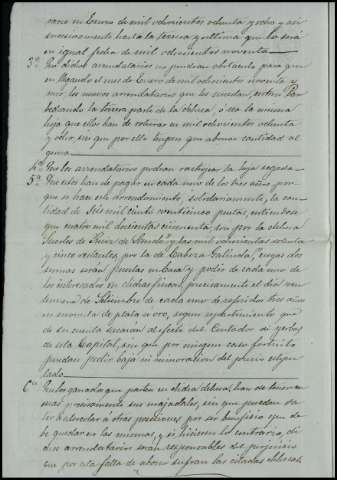 raro en Enero de mil ochocientos ochenta y ocho y así
sucesivamente hasta la tercera y ultima que lo será
en igual fecha de mil ochocientos noventa
3ª Que dichos arrendatarios no pondran obstaculo para que
en llegando el mes de Enero de mil ochocientos noventa y
uno los nuevos arrendatarios que les sucedan, entren
la tercera parte de la dehesa, ó sea la misma
hoja que ellos han de en mil ochocientos ochenta
y ocho, sin que por ello tengan que abonar cantidad al
guna
4ª Que los arrendatarios podran la hoja segunda
5ª Que estos han de pagar en cada uno de los tres años por
que se hace este arrendamiento, solidariamente, la can
tidad de Seis mil ciento veinticinco pesetas, entiendose
que cuatro mil doscientas cincuenta, son por la dehesa
de y las mil ochocientas setenta
y cinco restantes, por la de Cabeza Gallinda, cuyas dos
sumas seran puestas en casa y poder de cada uno de
los interesados en dichas fincas precisamente el dia vein
de Setiembre de cada uno de referidos tres años
en moneda de plata ú oro, segun repartimiento que
de su cuenta sacaran al efecto del Contador de yerbas
de esta Capital, sin que por ningun caso fortuito
puedan pedir baja ni minoracion del precio estipu
lado
6ª Que los ganados que pasten en dicha dehesa, han de tener en
mas precisamente sus majadales, sin que puedan sa
á otras posesiones por ser beneficio que de
be quedar en las mismas, y si hicieren lo contrario, di
chos arrendatarios seran responsables del perjuicio
que por esta falta de abono sufran las citadas dehesas.